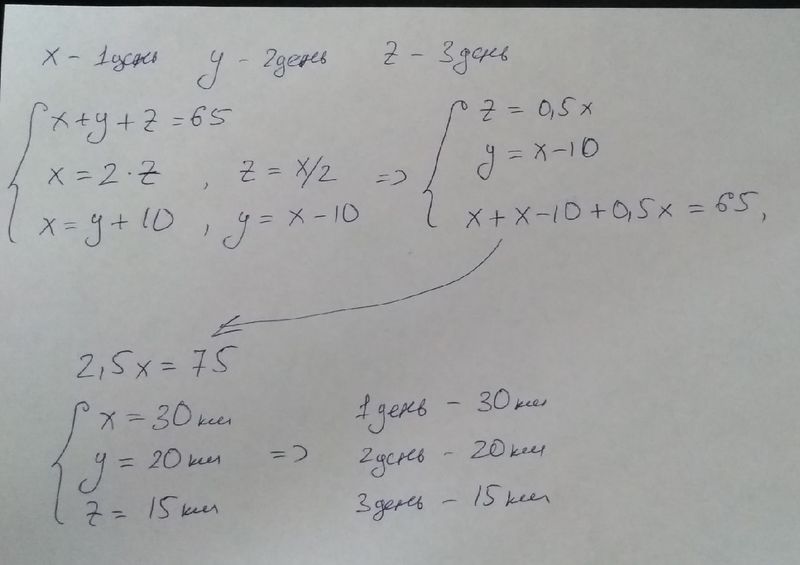 x - 1день y - 2день z - 3день
x + y + z = 65
x = 2 · z , z = x/2 =>
x = y + 10 , y = x - 10
z = 0,5x
y = x - 10
x + x - 10 + 0,5x = 65,
2,5x = 75
x = 30км
y = 20км =>
z = 15км
1день - 30км
2день - 20км
3день - 15км